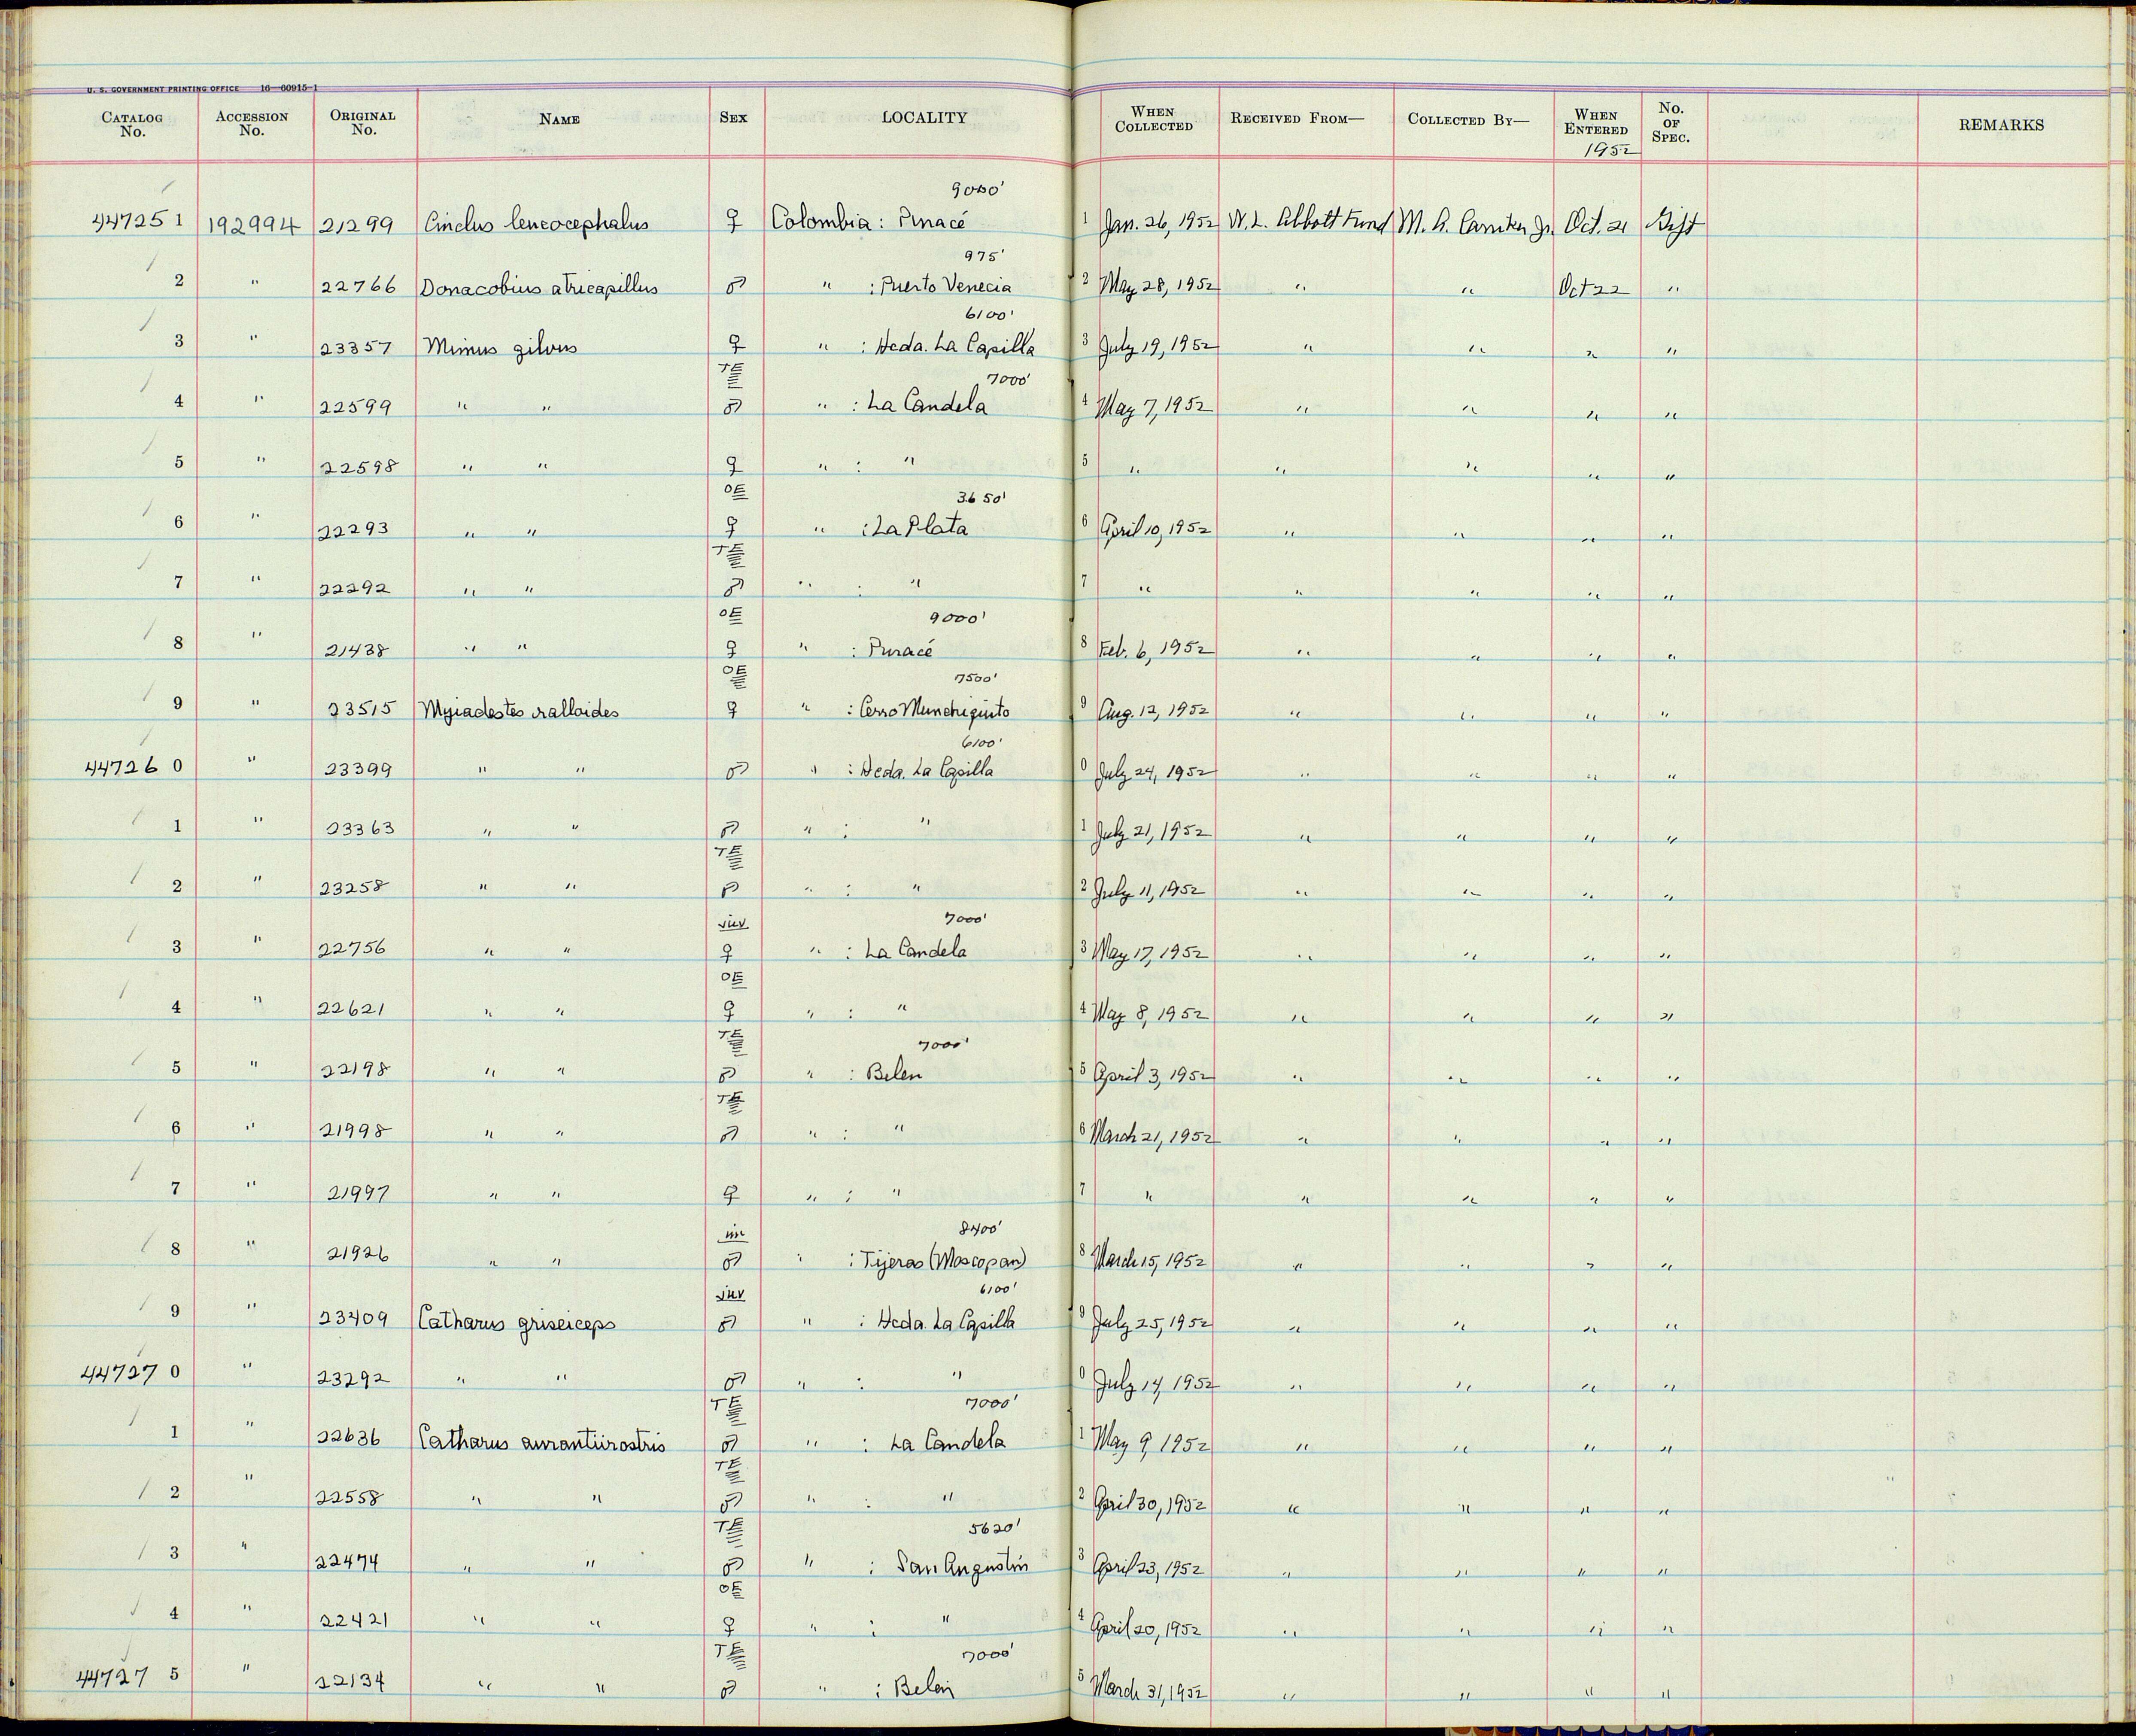 U. S. GOVERNMENT PRINTING OFFICE 16—60915-1
CATALOG No. ACCESSION No. ORIGINAL No. NAME SEX LOCALITY WHEN COLLECTED RECEIVED FROM— COLLECTED BY— WHEN ENTERED 1952 No. OF SPEC. REMARKS
9000'
447251 192994 21299 Cinclus leucocephalus ♀ Colombia: Puracé 1 Jan. 26, 1952 W. L. Abbott Fund M. A. Carriker Jr. Oct. 21 Gift
975'
2 " 22766 Donacobius atricapillus ♂ " : Puerto Venecia 2 May 28, 1952 " " Oct 22 "
6100'
3 " 23357 Mimus gilvus ♀ " : Hcda. La Capilla 3 July 19, 1952 " " " "
TE 7000'
4 " 22599 " " ♂ " : La Candela 4 May 7, 1952 " " " "
5 " 22598 " " ♀ " : " 5 " " " " "
OE 3650'
6 " 22293 " " ♀ " : La Plata 6 April 10, 1952 " " " "
TE
7 " 22292 " " ♂ " : " 7 " " " " "
OE 9000'
8 " 21438 " " ♀ " : Puracé 8 Feb. 6, 1952 " " " "
OE 7500'
9 " 23515 Myiadestes ralloides ♀ " : Cerro Munchiquito 9 Aug. 12, 1952 " " " "
6100'
447260 " 23399 " " ♂ " : Hcda. La Capilla 0 July 24, 1952 " " " "
1 " 23363 " " ♂ " : " 1 July 21, 1952 " " " "
TE
2 " 23258 " " ♂ " : " 2 July 11, 1952 " " " "
juv 7000'
3 " 22756 " " ♀ " : La Candela 3 May 17, 1952 " " " "
OE
4 " 22621 " " ♀ " : " 4 May 8, 1952 " " " "
TE 7000'
5 " 22198 " " ♂ " : Belen 5 April 3, 1952 " " " "
TE
6 " 21998 " " ♂ " : " 6 March 21, 1952 " " " "
7 " 21997 " " ♀ " : " 7 " " " " "
im 8400'
8 " 21926 " " ♂ " : Tijeras (Moscopan) 8 March 15, 1952 " " " "
juv 6100'
9 " 23409 Catharus griseiceps ♂ " : Hcda. La Capilla 9 July 25, 1952 " " " "
447270 " 23292 " " ♂ " : " 0 July 14, 1952 " " " "
TE 7000'
1 " 22636 Catharus aurantiirostris ♂ " : La Candela 1 May 9, 1952 " " " "
TE
2 " 22558 " " ♂ " : " 2 April 30, 1952 " " " "
TE 5620'
3 " 22474 " " ♂ " : San Angustin 3 April 23, 1952 " " " "
OE
4 " 22421 " " ♀ " : " 4 April 20, 1952 " " " "
TE 7000'
447275 " 22134 " " ♂ " : Belen 5 March 31, 1952 " " " "